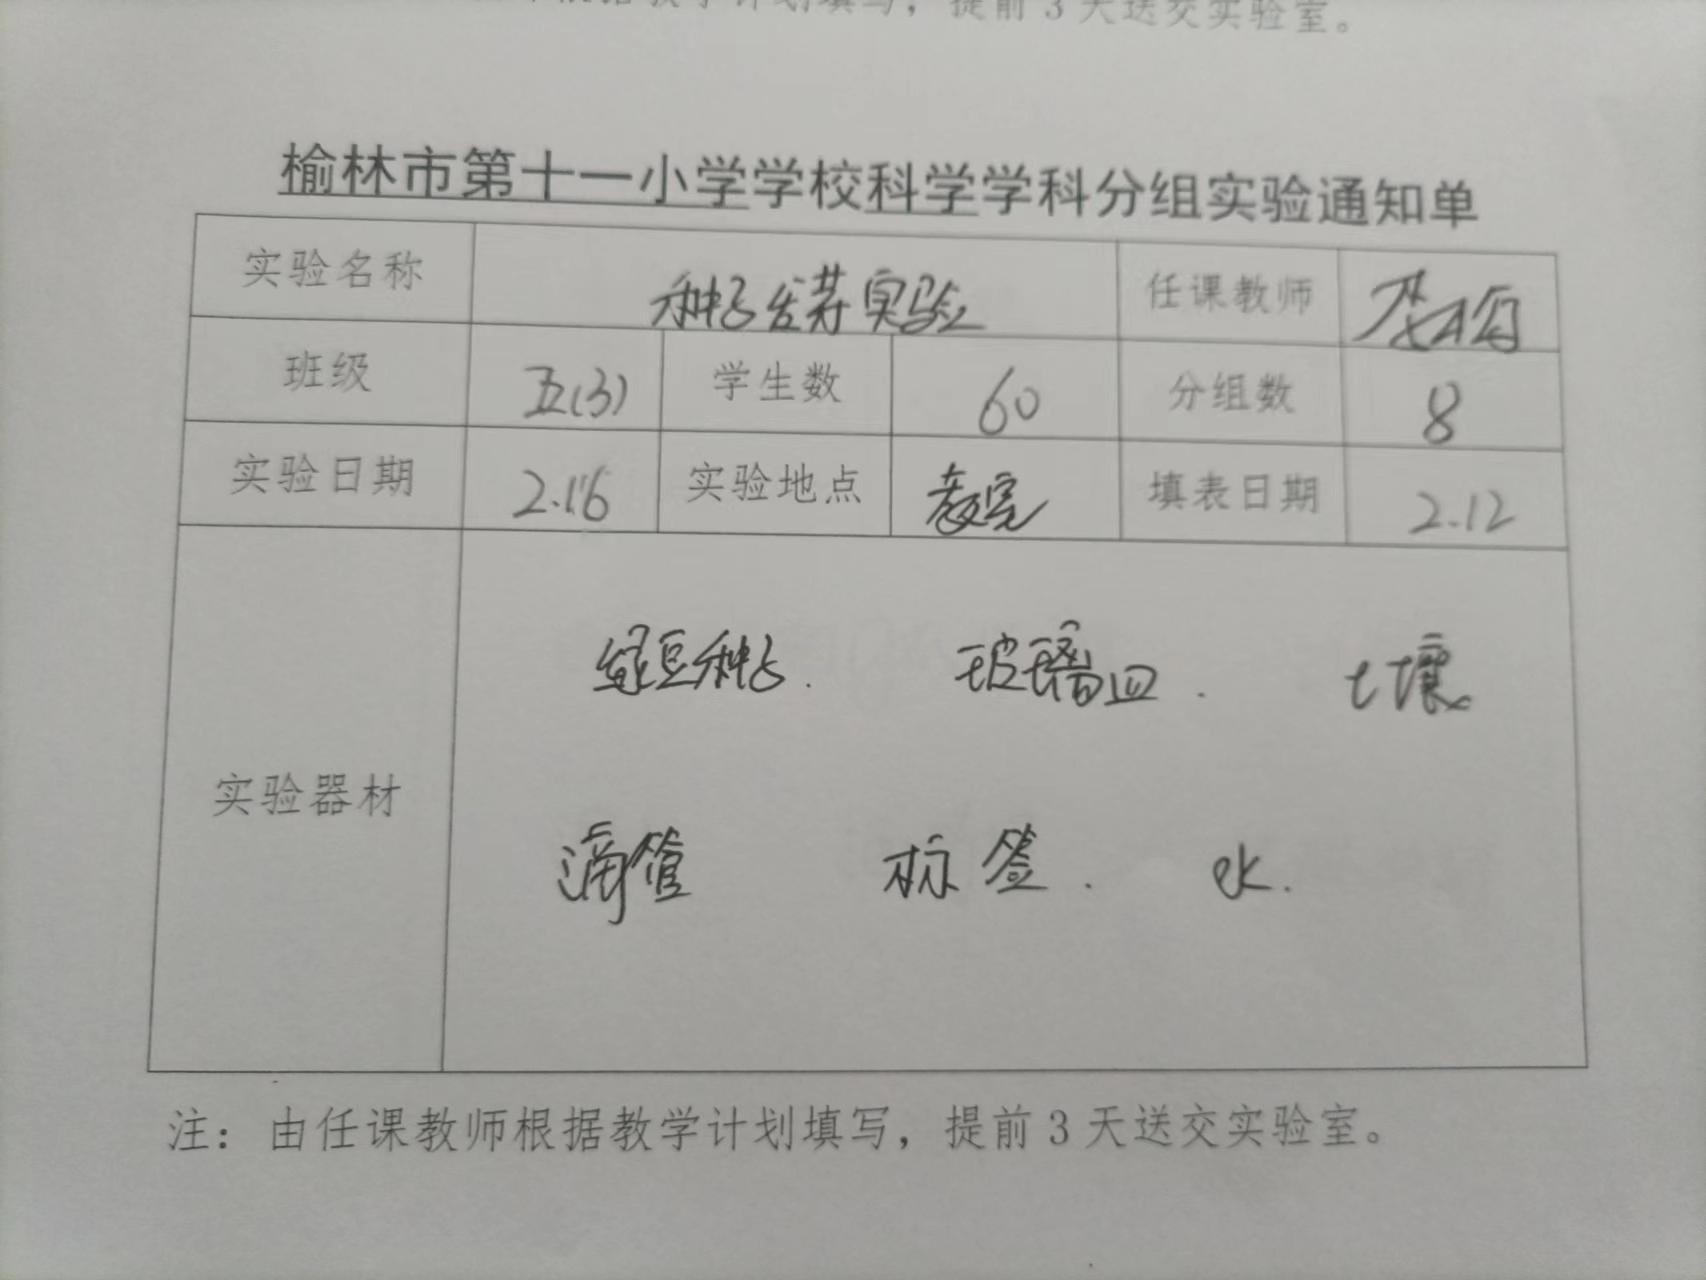 根据教学计划填写，提前3天送交实验室。
榆林市第十一小学学校科学学科分组实验通知单
实验名称 种子发芽实验 任课教师
班级 五(3) 学生数 60 分组数 8
实验日期 2.16 实验地点 教室 填表日期 2.12
实验器材
绿豆种子. 玻璃皿. 土壤
滴管 标签. 水.
注：由任课教师根据教学计划填写，提前3天送交实验室。